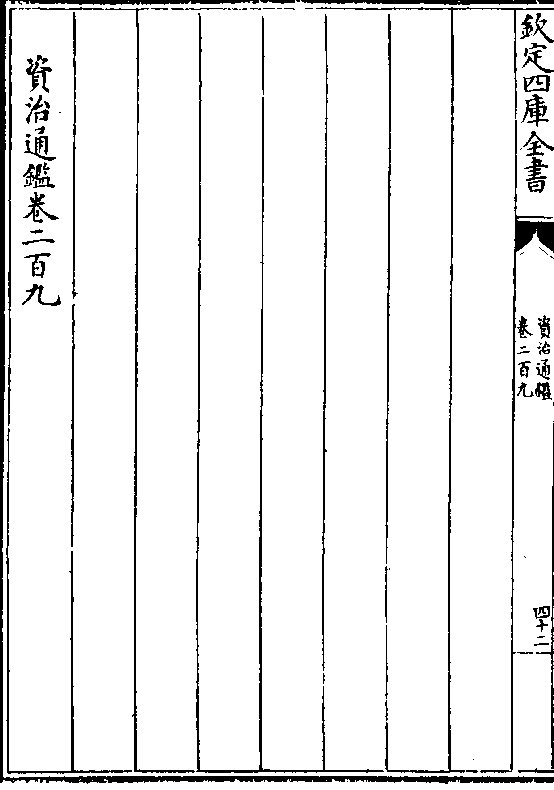 欽定四庫全書
資治通鑑
卷二百九
四十二
資治通鑑卷二百九